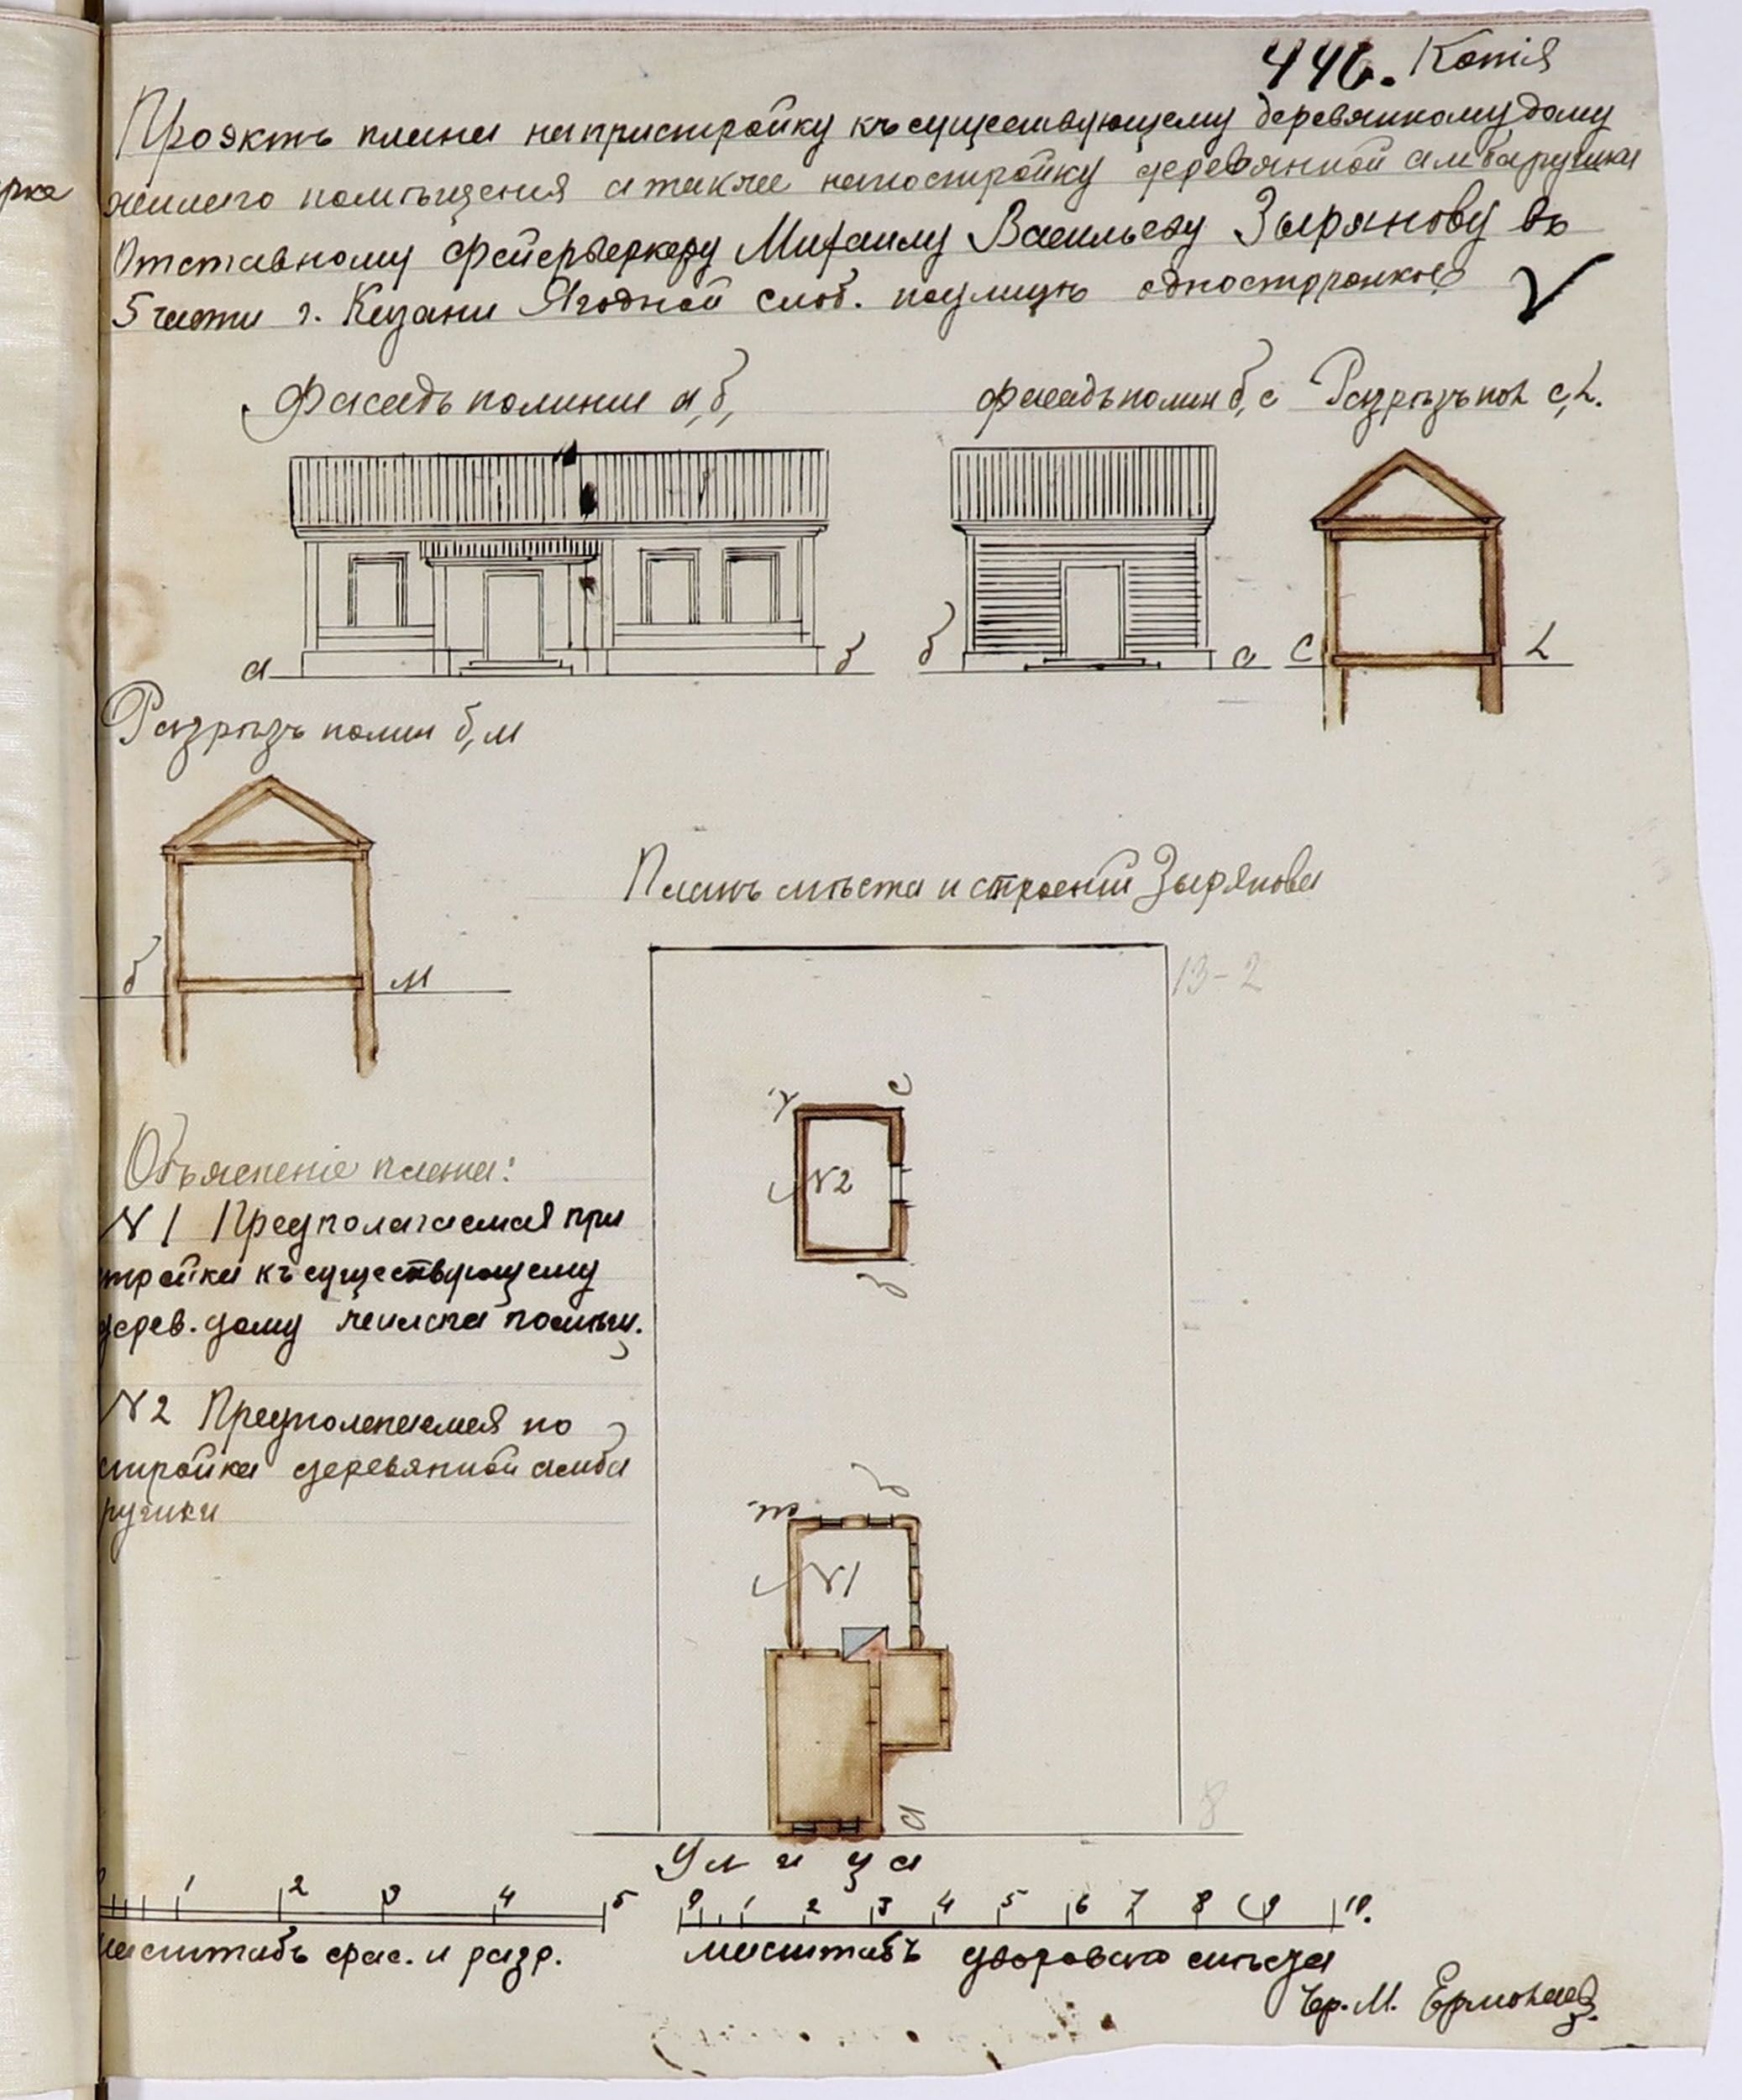 446. Копія
Проэктъ плана на пристройку къ существующему деревянному дому
жилаго помѣщенія а также на постройку деревянной амбарушки
Отставному фейерверкеру Михаилу Васильеву Зырянову въ
5 части г. Казани Ягодной слоб. по улицѣ односторонкѣ
Фасадъ по линіи а, б,
фасадъ по лин б, с
Разрѣзъ по L с, L.
а
б
б
с
С
L
Разрѣзъ по лин б, м
б
м
Планъ мѣста и строеній Зырянова
13-2
с
N2
Объясненіе плана:
N 1 Предполагаемая при
стройка къ существующему
дерев. дому жилаго помѣщ.
N 2 Предполагаемая по
стройка деревянной амба
рушки
т
б
N1
а
8
Улица
1 2 3 4 5
0 1 2 3 4 5 6 7 8 9 10.
масштабъ фас. и разр.
масштабъ двороваго мѣста
Чер. М. Ермолаев